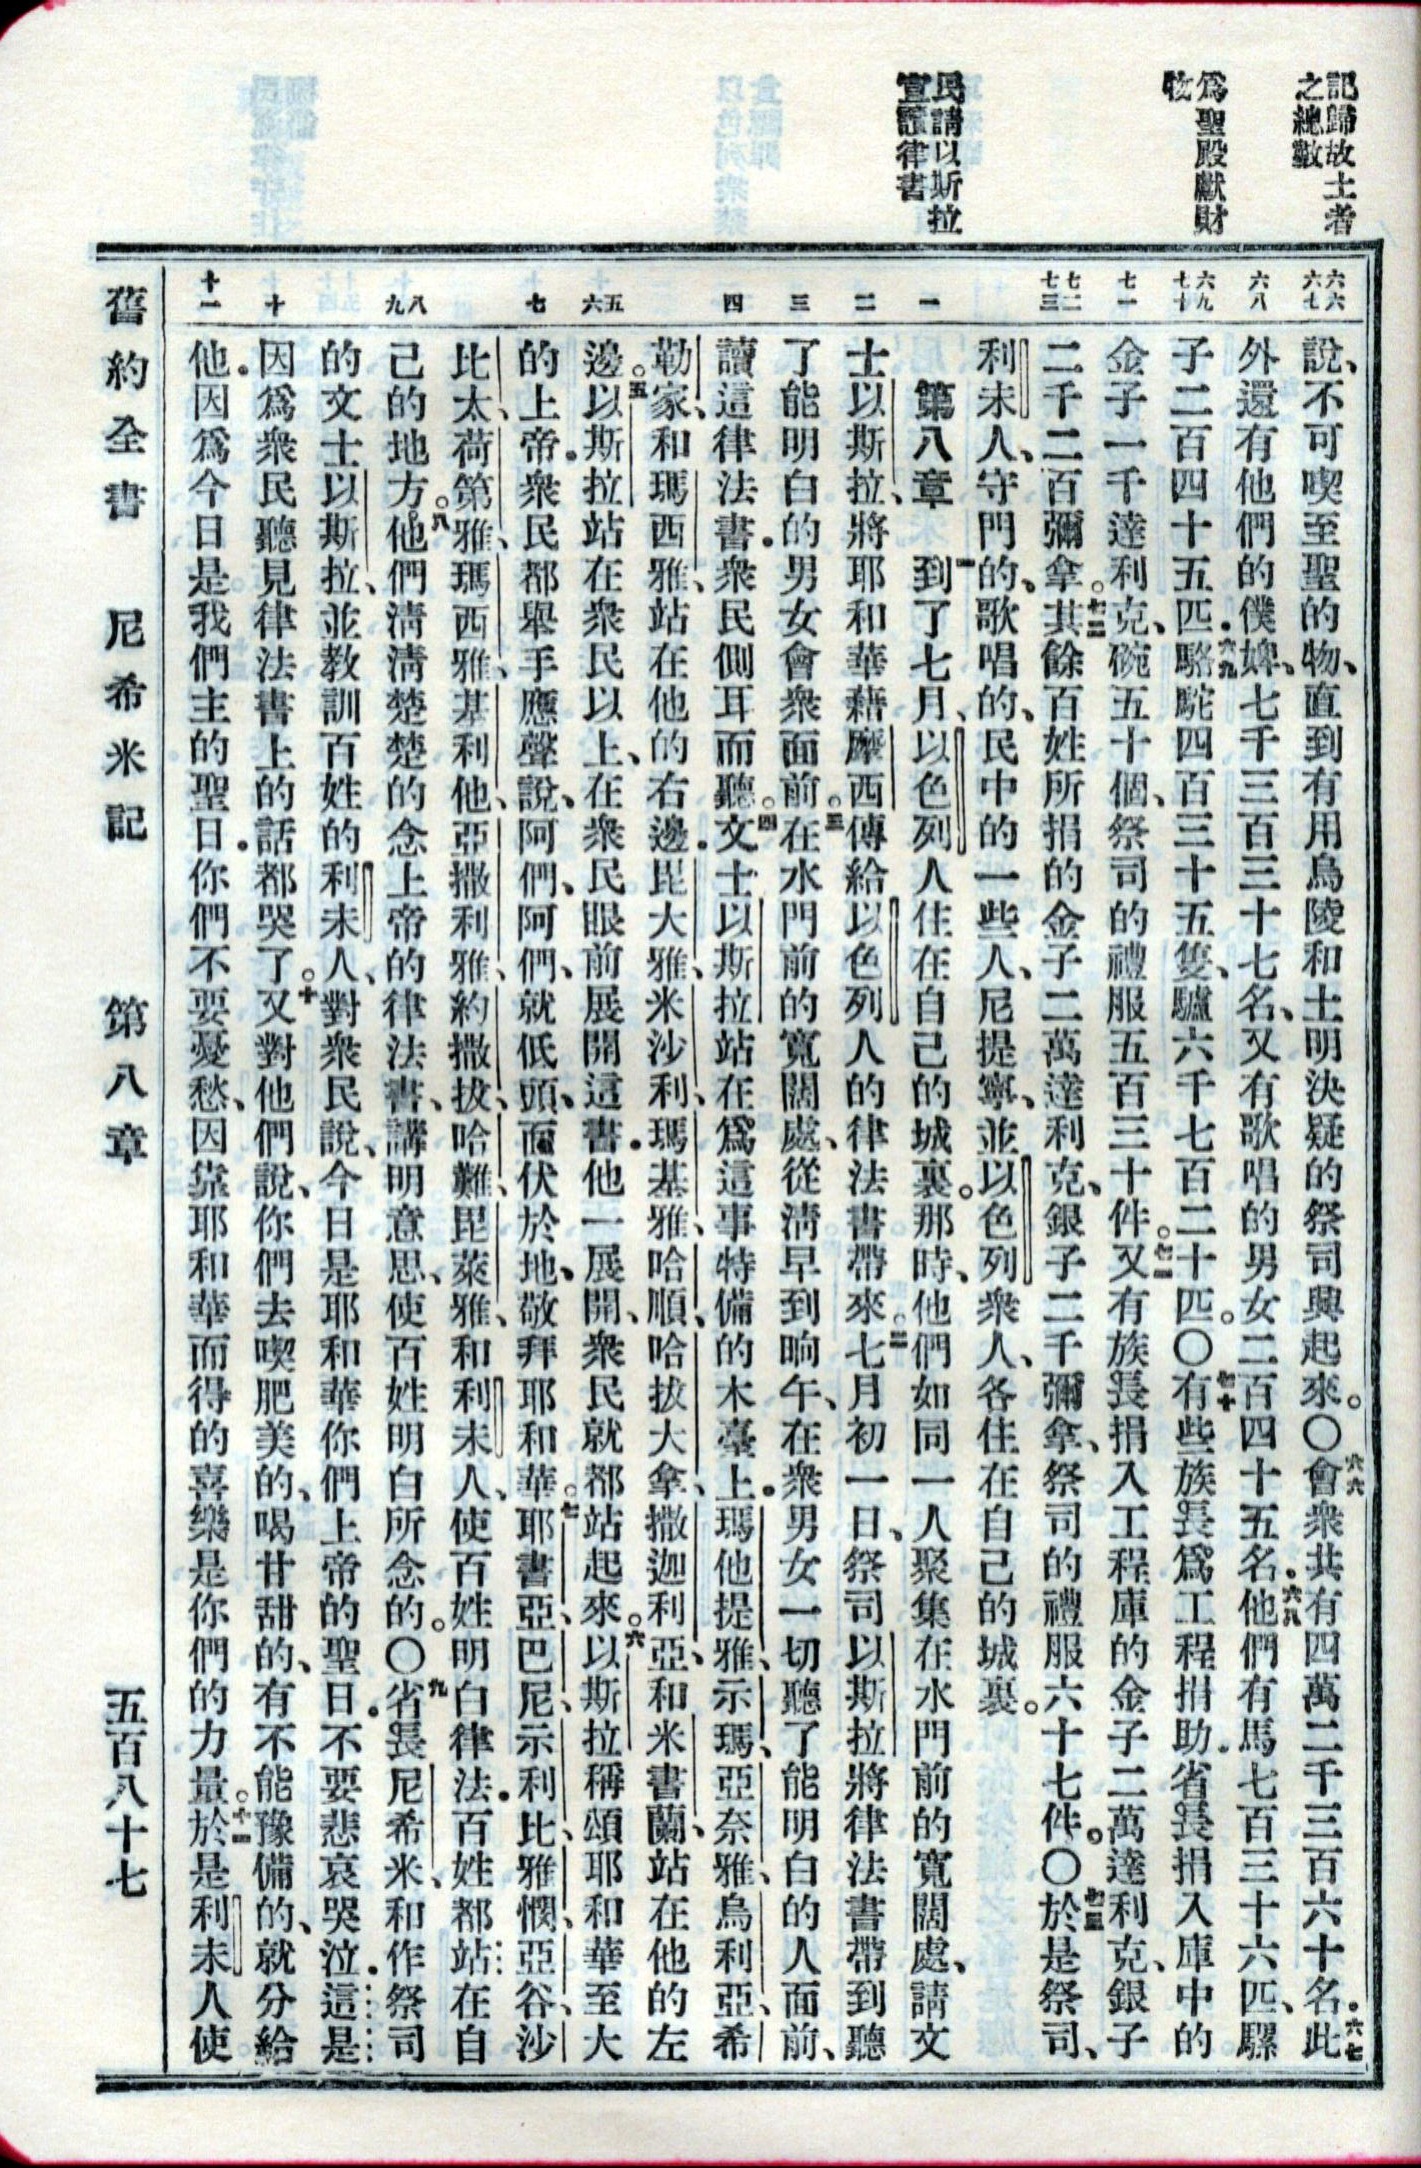 記歸故土者
之總數
爲聖殿獻財
物
民請以斯拉
宣讀律書
六六
六七
六八
六九
七十
七一
七二
七三
一
二
三
四
五
六
七
八
九
十
十一
說、不可喫至聖的物、直到有用烏陵和土明決疑的祭司興起來。〇六六會衆共有四萬二千三百六十名．六七此
外還有他們的僕婢、七千三百三十七名、又有歌唱的男女二百四十五名．六八他們有馬七百三十六匹、騾
子二百四十五匹．六九駱駝四百三十五隻、驢六千七百二十匹。〇七十有些族長爲工程捐助．省長捐入庫中的
金子一千達利克、碗五十個、祭司的禮服五百三十件。七一又有族長捐入工程庫的金子二萬達利克、銀子
二千二百彌拿。七二其餘百姓所捐的金子二萬達利克、銀子二千彌拿、祭司的禮服六十七件。〇七三於是祭司、
利未人、守門的、歌唱的、民中的一些人、尼提寧、並以色列衆人、各住在自己的城裏。
第八章 一到了七月、以色列人住在自己的城裏。那時、他們如同一人聚集在水門前的寬闊處、請文
士以斯拉、將耶和華藉摩西傳給以色列人的律法書帶來。二七月初一日、祭司以斯拉將律法書帶到聽
了能明白的男女會衆面前。三在水門前的寬闊處、從淸早到晌午、在衆男女一切聽了能明白的人面前、
讀這律法書．衆民側耳而聽。四文士以斯拉站在爲這事特備的木臺上．瑪他提雅、示瑪、亞奈雅、烏利亞、希
勒家、和瑪西雅、站在他的右邊．毘大雅、米沙利、瑪基雅、哈順、哈拔大拿、撒迦利亞、和米書蘭、站在他的左
邊。五以斯拉站在衆民以上、在衆民眼前展開這書．他一展開、衆民就都站起來。六以斯拉稱頌耶和華至大
的上帝．衆民都舉手應聲說、阿們、阿們、就低頭、面伏於地、敬拜耶和華。七耶書亞、巴尼、示利比、雅憫、亞谷、沙
比太、荷第雅、瑪西雅、基利他、亞撒利雅、約撒拔、哈難、毘萊雅、和利未人、使百姓明白律法．百姓都站在自
己的地方。八他們淸淸楚楚的念上帝的律法書、講明意思、使百姓明白所念的。〇九省長尼希米、和作祭司
的文士以斯拉、並教訓百姓的利未人、對衆民說、今日是耶和華你們上帝的聖日．不要悲哀哭泣．這是
因爲衆民聽見律法書上的話都哭了。十又對他們說、你們去喫肥美的、喝甘甜的、有不能豫備的、就分給
他．因爲今日是我們主的聖日．你們不要憂愁、因靠耶和華而得的喜樂是你們的力量。十一於是利未人使
舊約全書 尼希米記 第八章 五百八十七